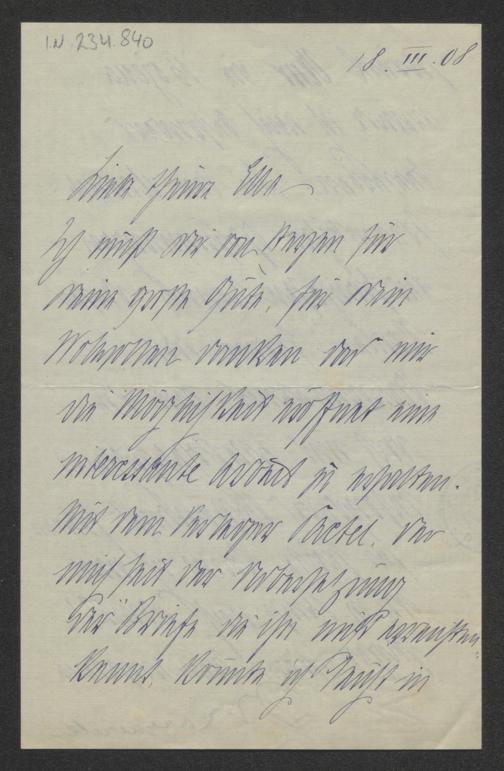 I.N. 234.840
18. III. 08
Liebe theure Ella
Ich muß dir von Herzen für
deine große Güte, für dein
Wohlwollen danken das mir
die Möglichkeit eröffnet eine
interessante Arbeit zu erhalten.
Mit dem Verleger Paetel, der
mich seit der Uebersetzung
der Briefe die ihn nicht
kennt, konnte ich leicht in